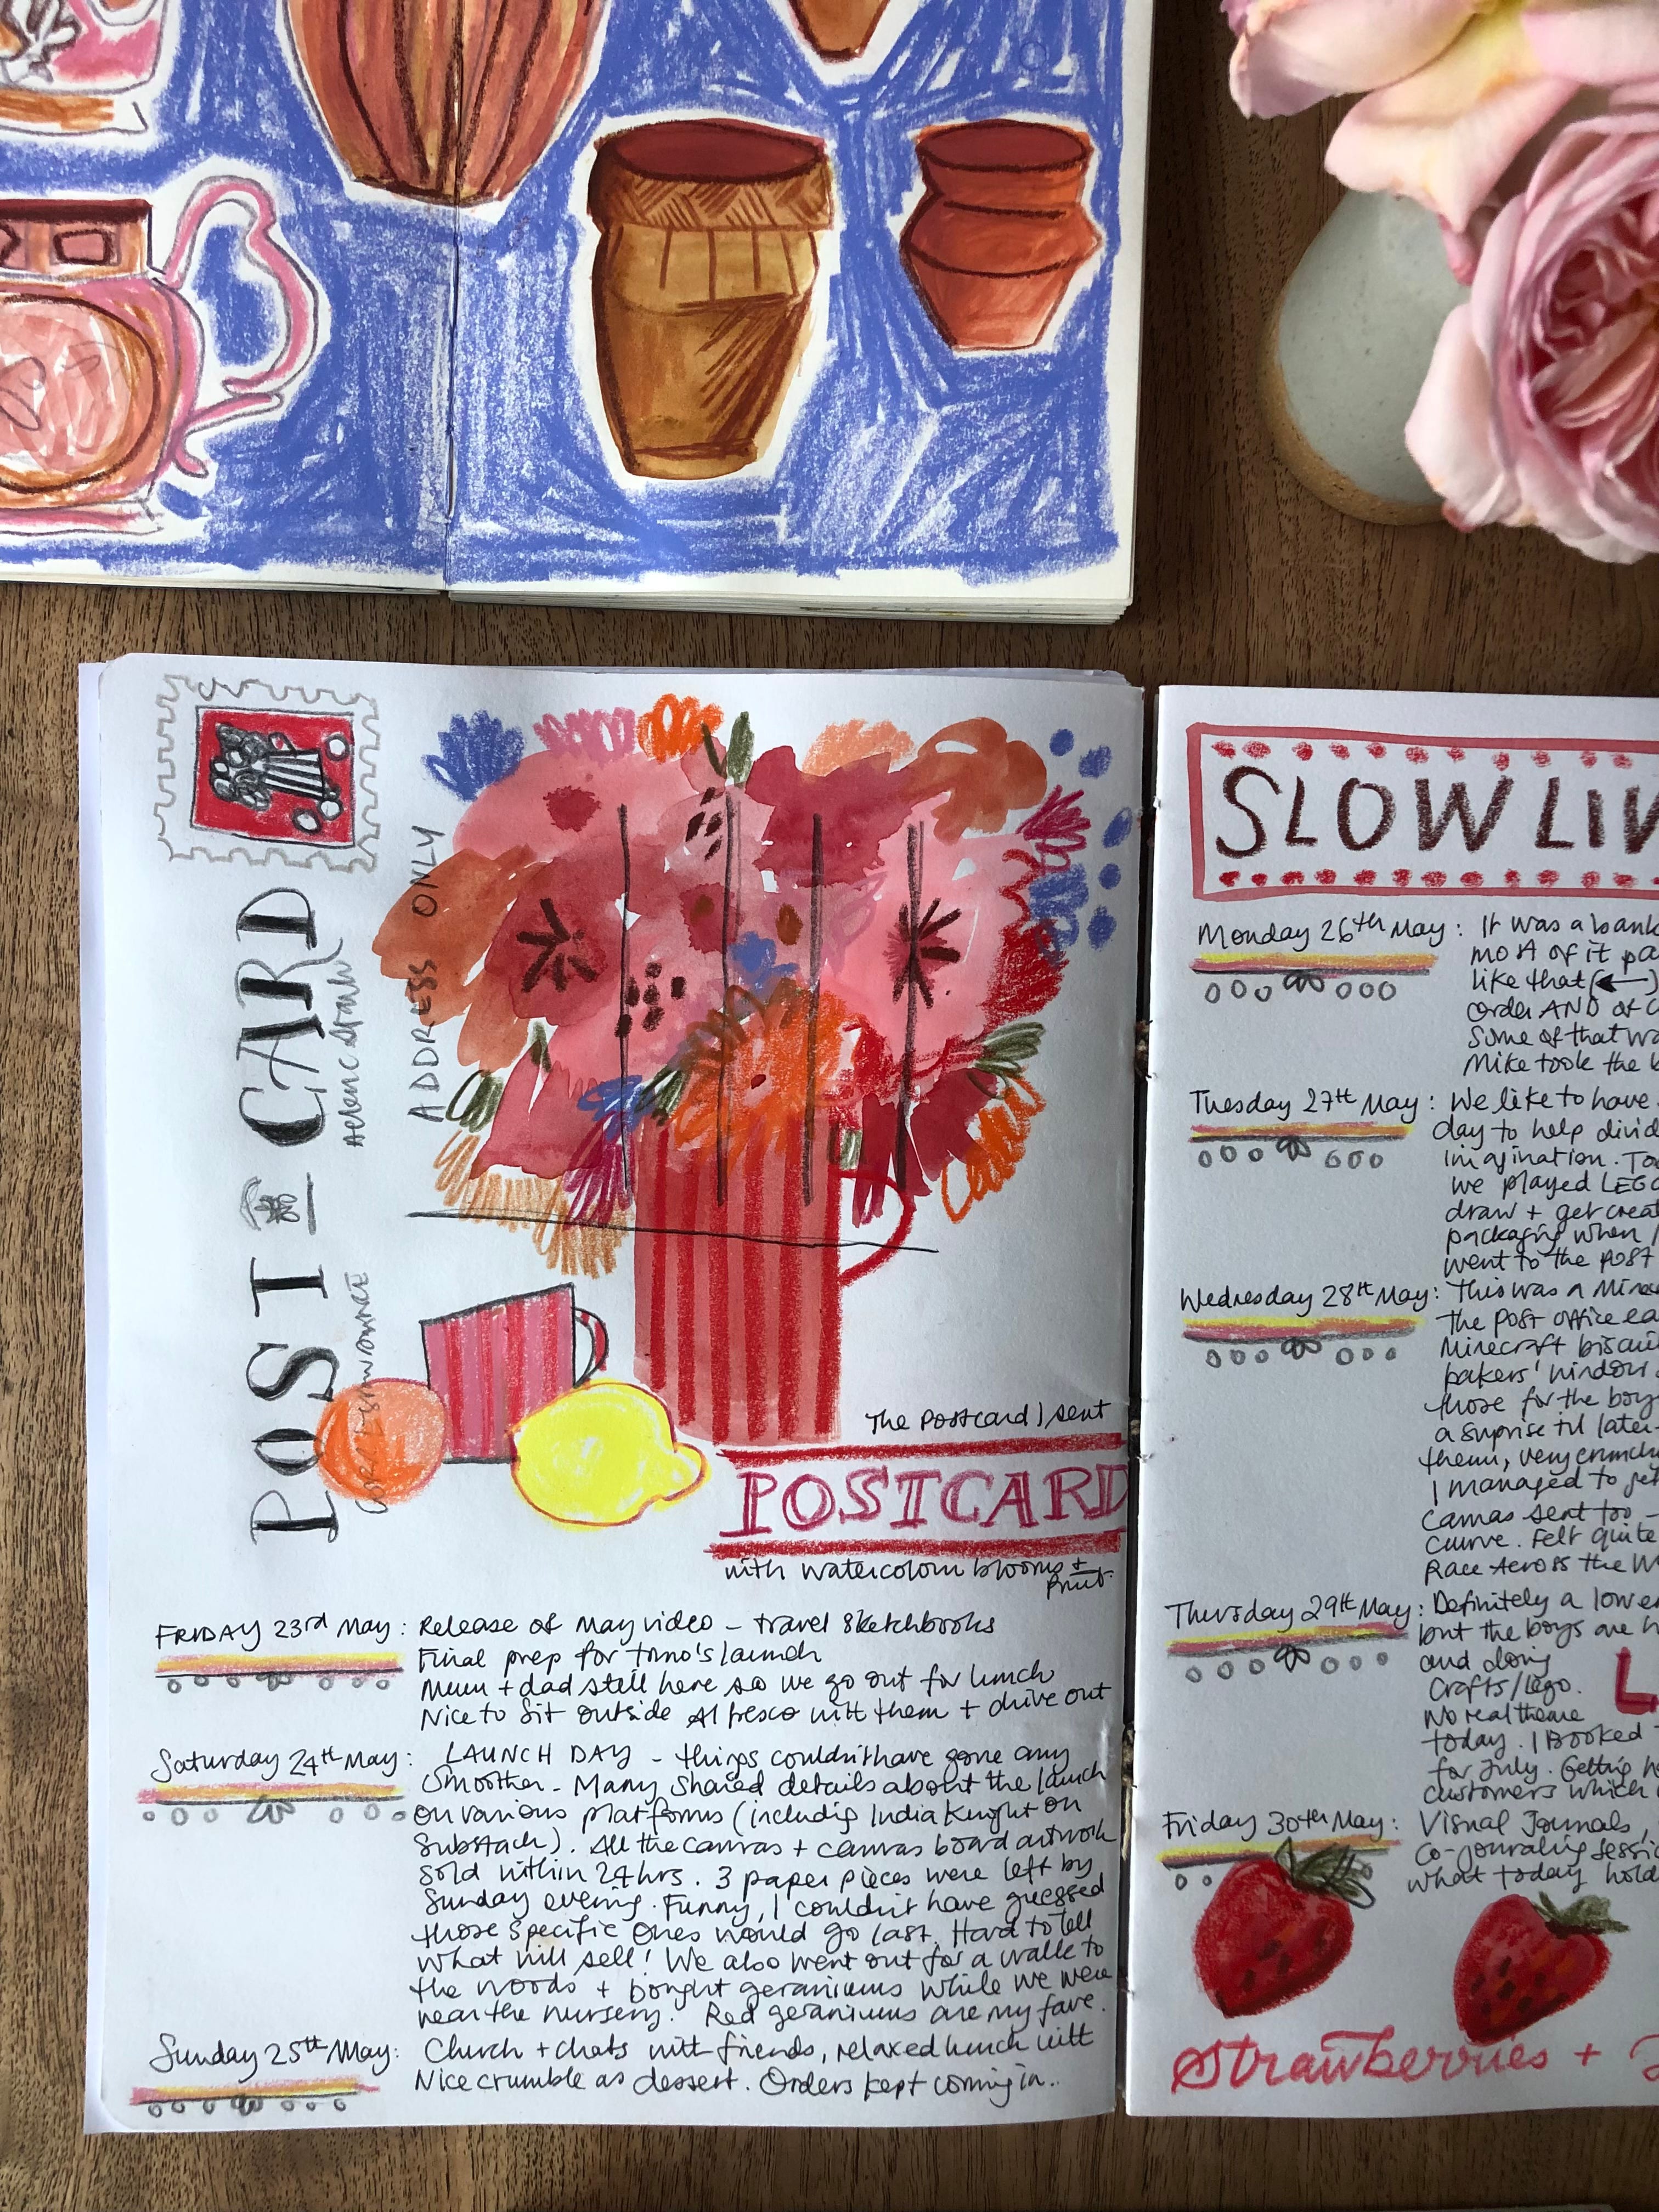 POST CARD
ADDRESS ONLY
The Postcard I sent
POSTCARD
with watercolour blooms +
print.
FRIDAY 23rd May: Release of May video - travel sketchbooks
Final prep for tmo's launch
Mum + dad still here so we go out for lunch
Nice to sit outside Al fresco with them + drive out
Saturday 24th May: LAUNCH DAY - things couldn't have gone any
smoother - Many shared details about the launch
on various platforms (including India Knight on
Substack). All the canvas + canvas board artwork
sold within 24hrs. 3 paper pieces were left by
Sunday evening. Funny, I couldn't have guessed
those specific ones would go last. Hard to tell
what will sell! We also went out for a walk to
the woods + bought geraniums while we were
near the nursery. Red geraniums are my fave.
Sunday 25th May: Church + chats with friends, relaxed lunch with
Nice crumble as dessert. Orders kept coming in..
SLOW LIV
Monday 26th May: It was a bank
most of it pa
like that (←)
order AND of c
Some of that wa
Mike took the b
Tuesday 27th May: We like to have
day to help divid
imagination. To
we played LEGO
draw + get creat
packaging when I
went to the post
Wednesday 28th May: This was a Mine
the post office ea
Minecraft biscui
bakers' window
those for the boys
a suprise til later
them, very crunchy
I managed to get
canvas sent too -
curve. Felt quite
Race Across the W
Thursday 29th May: Definitely a low e
but the boys are h
and doing
Crafts/Lego.
No real theme
today. I Booked
for July. Getting
customers which
L
Friday 30th May: Visual Journals,
Co-journaling sessi
what today hold
Strawberries +